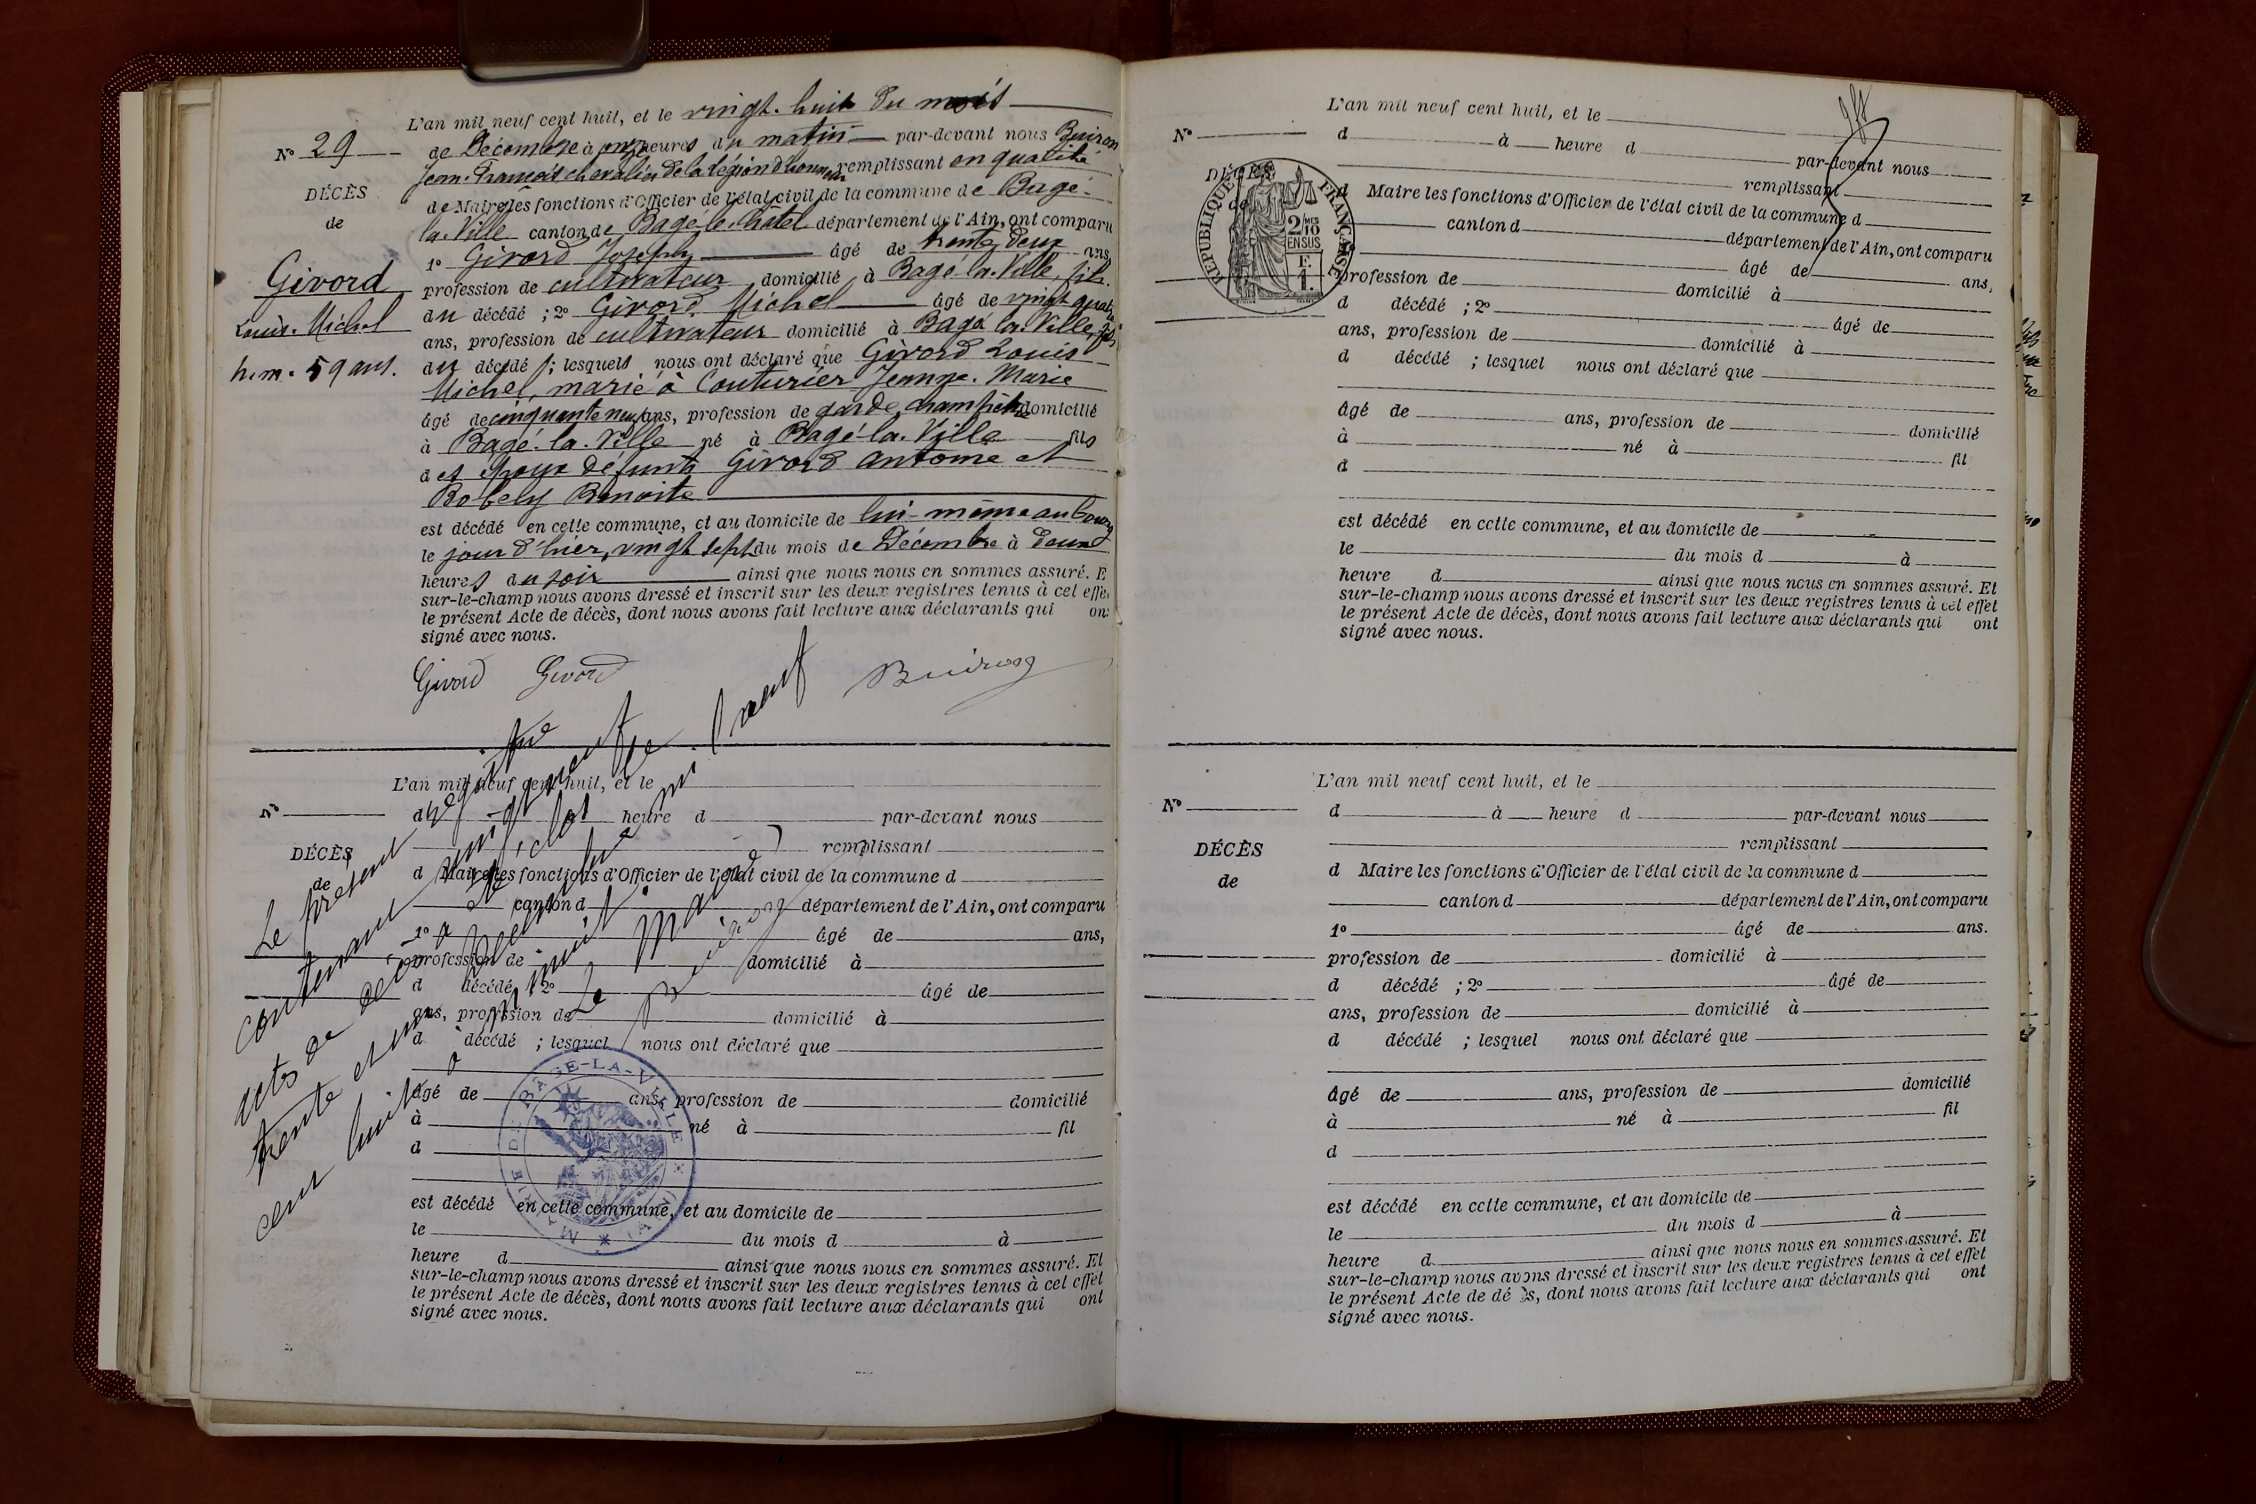 L'an mil neuf cent huit, et le vingt-huit du mois
N° 29
de Décembre à onze heures du matin par-devant nous Buiron
Jean-François chevalier de la légion d'honneur remplissant en qualité
DÉCÈS
de Maire les fonctions d'Officier de l'état civil de la commune de Bagé-
de
la-Ville canton de Bagé-le-Châtel département de l'Ain, ont comparu
1° Givord Joseph âgé de trente deux ans,
Givord
profession de cultivateur domicilié à Bagé-la-Ville, fils
Louis-Michel
du décédé ; 2° Givord Michel âgé de vingt quatre
ans, profession de cultivateur domicilié à Bagé-la-Ville, fils
h. m. 59 ans.
du décédé ; lesquels nous ont déclaré que Givord Louis
Michel, marié à Couturier Jeanne-Marie
âgé de cinquante neuf ans, profession de garde champêtre domicilié
à Bagé-la-Ville né à Bagé-la-Ville fils
des époux défunts Givord Antoine et
Benoite
est décédé en cette commune, et au domicile de lui-même au bourg
le jour d'hier, vingt sept du mois de Décembre à deux
heures du soir ainsi que nous nous en sommes assuré. E
sur-le-champ nous avons dressé et inscrit sur les deux registres tenus à cet effe
le présent Acte de décès, dont nous avons fait lecture aux déclarants qui on
signé avec nous.
Givord Givord Buiron
L'an mil neuf cent huit, et le
N°
d à heure d par-devant nous
remplissant
DÉCÈS
d Maire les fonctions d'Officier de l'état civil de la commune d
de
canton d département de l'Ain, ont comparu
1° âgé de ans,
profession de domicilié à
d décédé ; 2° âgé de
ans, profession de domicilié à
d décédé ; lesquel nous ont déclaré que
âgé de ans, profession de domicilié
à né à fil
d
est décédé en cette commune, et au domicile de
le du mois d à
heure d ainsi que nous nous en sommes assuré. Et
sur-le-champ nous avons dressé et inscrit sur les deux registres tenus à cet effet
le présent Acte de décès, dont nous avons fait lecture aux déclarants qui ont
signé avec nous.
Le présent registre
contenant vingt neuf
actes de décès a été clos le
trente et un Décembre mil neuf
cent huit à minuit.
Le Maire
Buiron
MAIRIE DE BAGÉ-LA-VILLE * (AIN) *
L'an mil neuf cent huit, et le
N°
d à heure d par-devant nous
remplissant
DÉCÈS
d Maire les fonctions d'Officier de l'état civil de la commune d
de
canton d département de l'Ain, ont comparu
âgé de ans,
profession de domicilié à
d décédé ; 2° âgé de
ans, profession de domicilié à
d décédé ; lesquel nous ont déclaré que
âgé de ans, profession de domicilié
à né à fil
d
est décédé en cette commune, et au domicile de
le du mois d à
heure d ainsi que nous nous en sommes assuré. Et
sur-le-champ nous avons dressé et inscrit sur les deux registres tenus à cet effet
le présent Acte de décès, dont nous avons fait lecture aux déclarants qui ont
signé avec nous.
RÉPUBLIQUE FRANÇAISE
2/10 MES
EN SUS
F.
1.
L'an mil neuf cent huit, et le
N°
d à heure d par-devant nous
remplissant
DÉCÈS
d Maire les fonctions d'Officier de l'état civil de la commune d
de
canton d département de l'Ain, ont comparu
1° âgé de ans.
profession de domicilié à
d décédé ; 2° âgé de
ans, profession de domicilié à
d décédé ; lesquel nous ont déclaré que
âgé de ans, profession de domicilié
à né à fil
d
est décédé en cette commune, et au domicile de
le du mois d à
heure d ainsi que nous nous en sommes assuré. Et
sur-le-champ nous avons dressé et inscrit sur les deux registres tenus à cet effet
le présent Acte de dé s, dont nous avons fait lecture aux déclarants qui ont
signé avec nous.